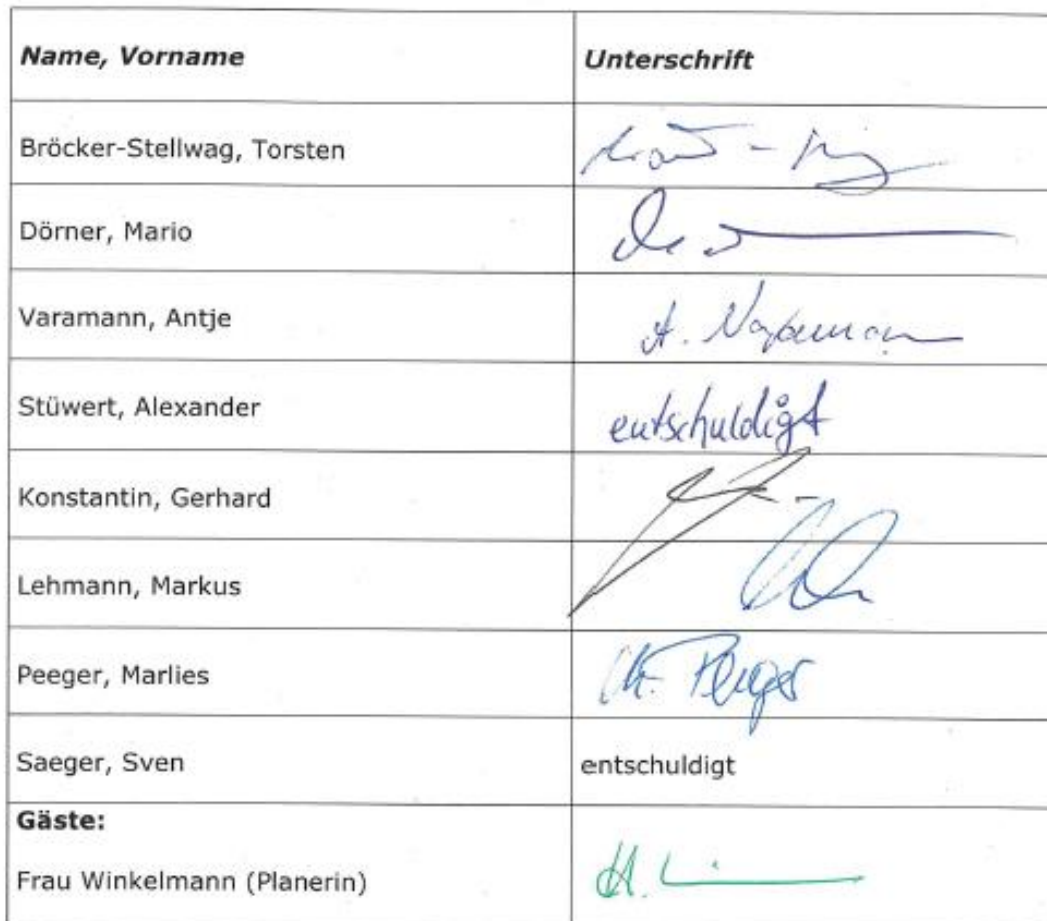 Name, Vorname Unterschrift
Bröcker-Stellwag, Torsten
Dörner, Mario
Varamann, Antje A.
Stüwert, Alexander entschuldigt
Konstantin, Gerhard
Lehmann, Markus
Peeger, Marlies M. Peeger
Saeger, Sven entschuldigt
Gäste:
Frau Winkelmann (Planerin)